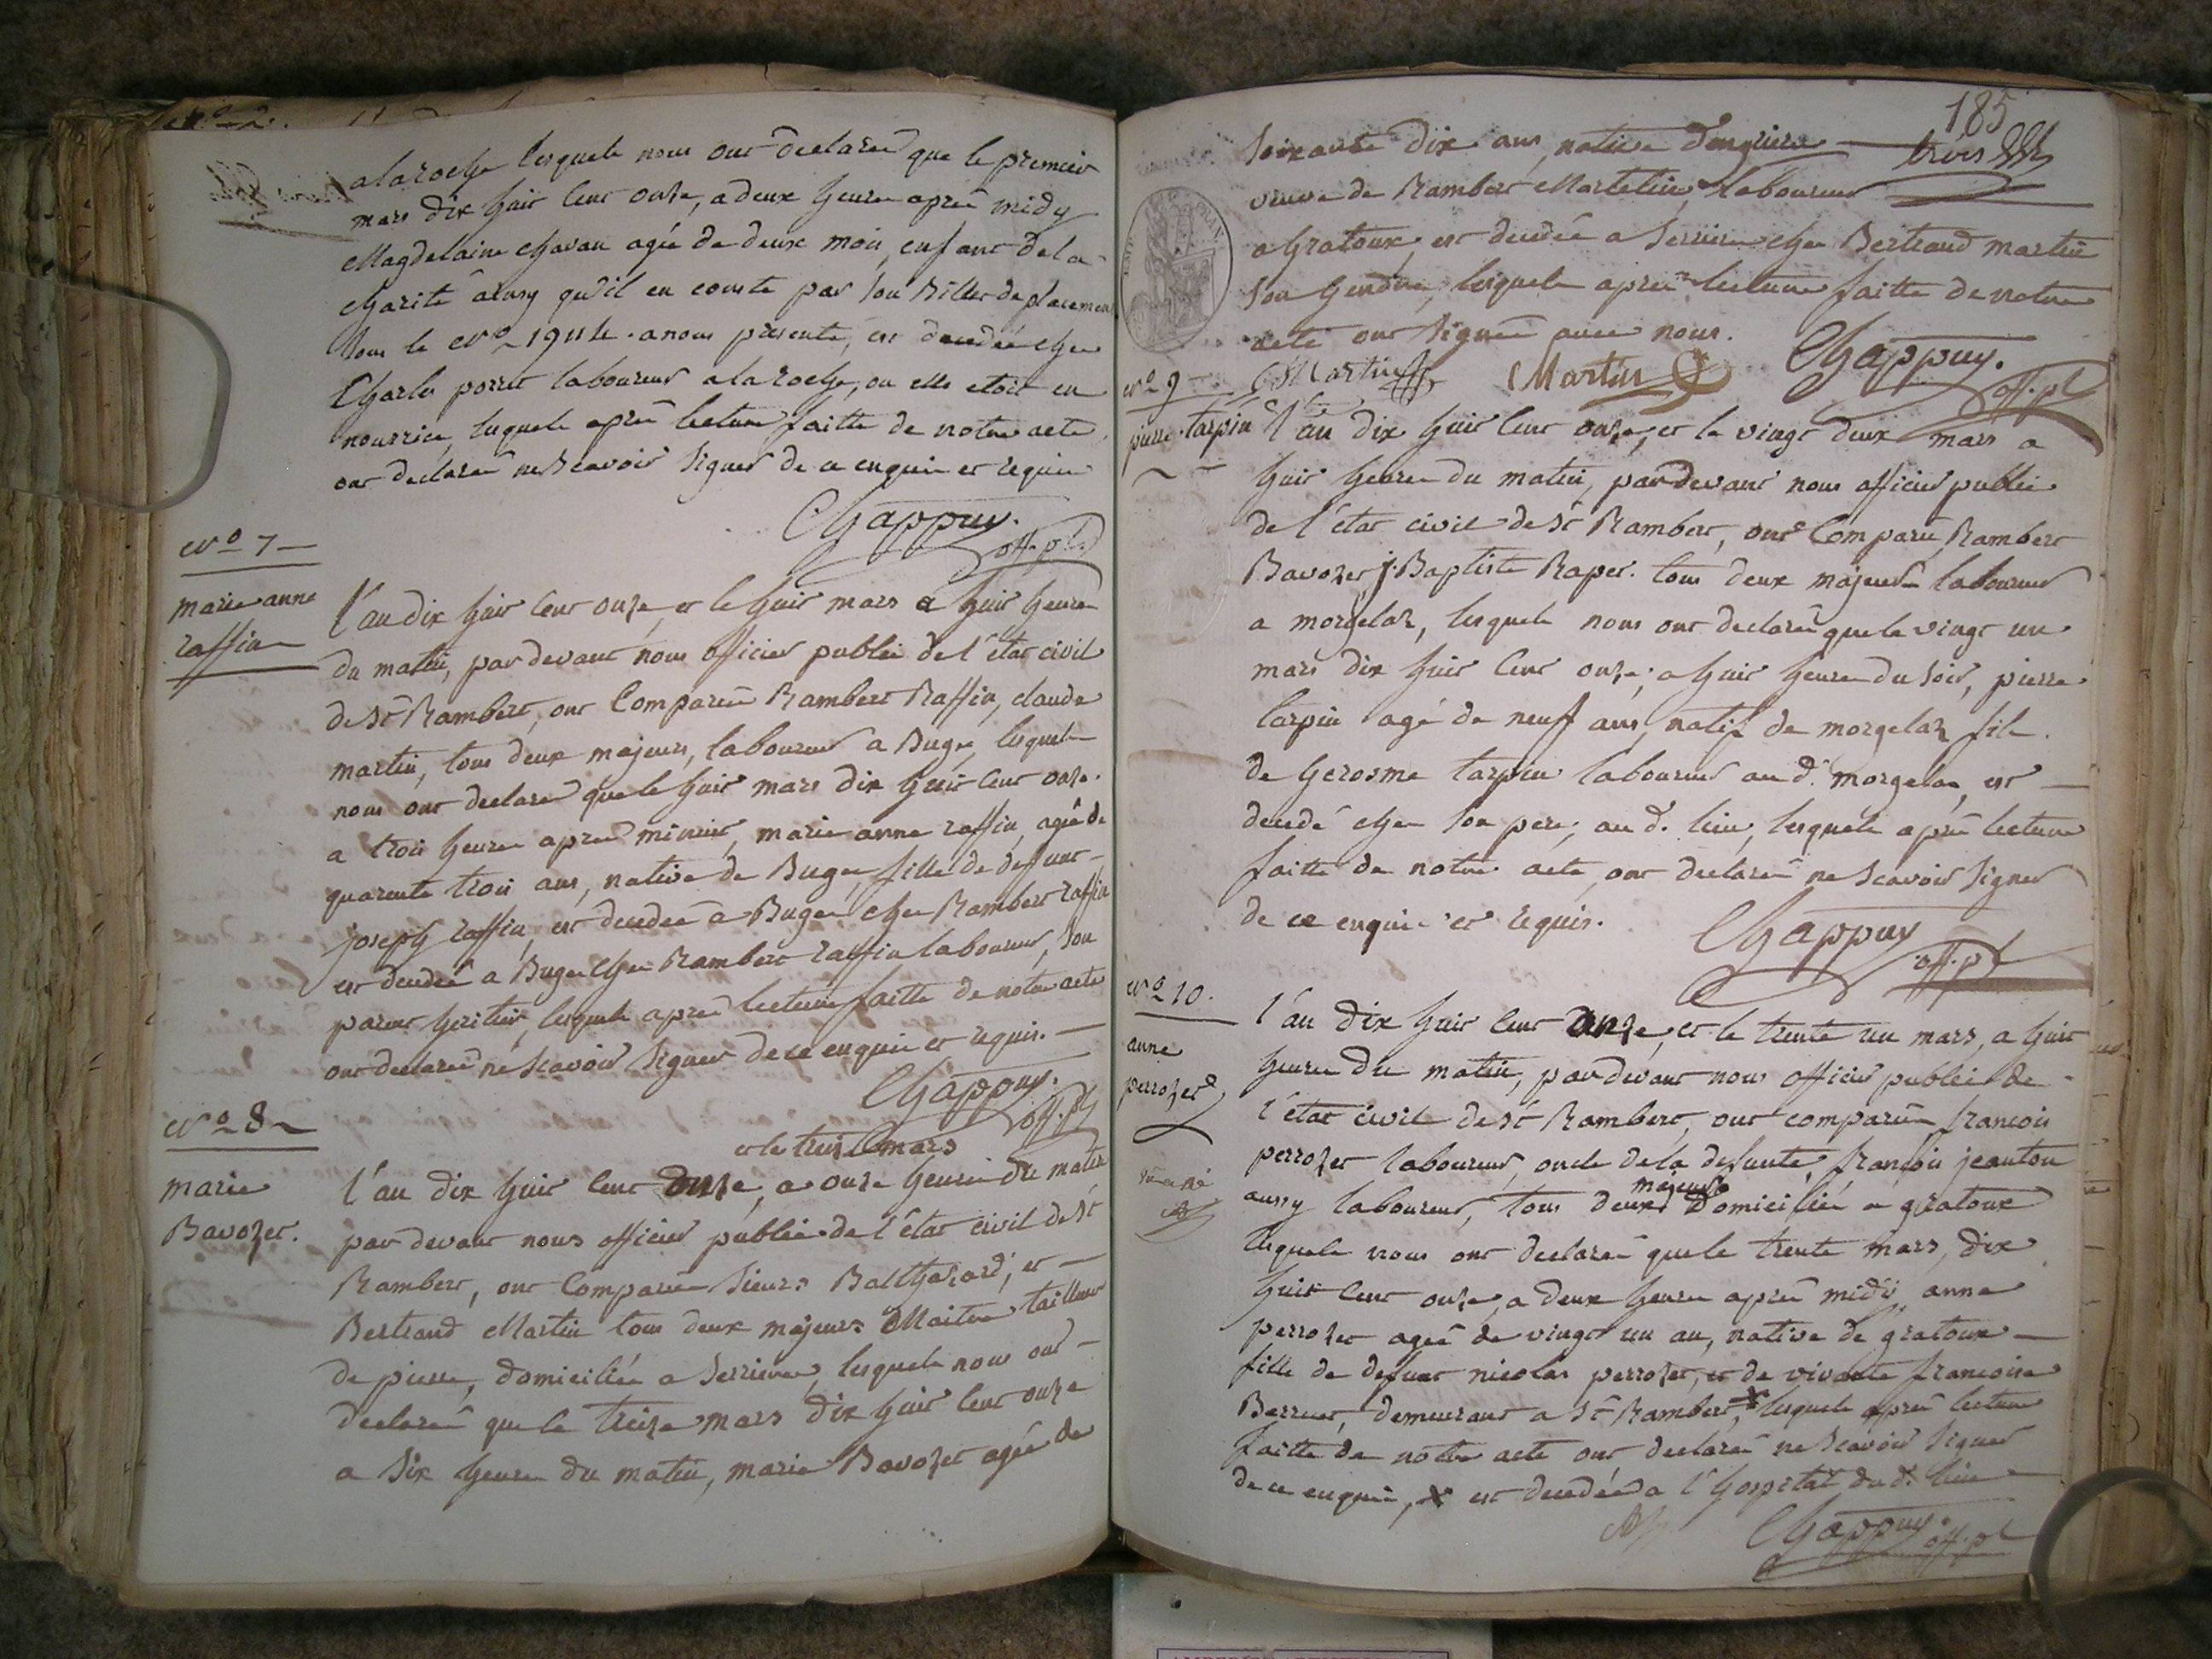 a la roche lesquels nous ont declarés que le premier
mars dix huit cent onze, a deux heures après midy
Magdelaine chavan agée de deux mois, enfant de la
charité ainsy qu'il en conste par son billet de placement
sous le No a nous presenté, est decedée chez
Charles laboureur a la roche, ou elle etoit en
nourrice, lesquels après lecture faitte de notre acte
ont declarés ne scavoir signer de ce enquis et requis
Chappuy.
off. pl.
No 7
marie anne
raffin
l'an dix huit cent onze, et le huit mars a huit heures
du matin, par devant nous officier public de l'état civil
de St Rambert, ont comparus Rambert Raffin, claude
martin, tous deux majeurs, laboureurs a Buges, lesquels
nous ont declarés que le huit mars dix huit cent onze
a trois heures apres minuit, marie anne raffin, agée de
quarente trois ans, native de Buges, fille de defunt
joseph raffin, est decedée a Buges chez Rambert raffin
est decedée a Buges chez Rambert raffin laboureur, son
parent heritier, lesquels après lecture faitte de notre acte
ont declarés ne scavoir signer de ce enquis et requis.
Chappuy.
off. pl
No 8
marie
Bavozet.
et le treize mars
l'an dix huit cent onze, a onze heures du matin
par devant nous officier public de l'état civil de St
Rambert, ont comparus sieurs Balthazard, et
Bertrand Martin tous deux majeurs Maitres tailleurs
de pierre, domiciliés a Serrieres, lesquels nous ont
declarés que le treize mars dix huit cent onze
a six heures du matin, marie Bavozet agée de
185
soixante dix ans, native
trois
veuve de Rambert Martelin, laboureur
a Gratoux, est decedée a Serrieres chez Bertrand martin
son gendre, lesquels après lecture faitte de notre
acte ont signés avec nous.
Martin Martin Chappuy.
off. pl
No 9
pierre tarpin
l'an dix huit cent onze, et le vingt deux mars a
huit heures du matin, par devant nous officier public
de l'état civil de St Rambert, ont comparus Rambert
Bavozet j. Baptiste Raper. tous deux majeurs laboureurs
a morgelaz, lesquels nous ont declarés que le vingt un
mars dix huit cent onze, a huit heures du soir, pierre
tarpin agé de neuf ans, natif de morgelaz fils
de Gerosme tarpin laboureur au d. morgelaz, est
decedé chez son pere, au d. lieu, lesquels après lecture
faitte de notre acte ont declarés ne scavoir signer
de ce enquis et requis.
Chappuy
off. pl
No 10.
anne
perrozet
l'an dix huit cent onze, et le trente un mars, a huit
heures du matin, par devant nous officier public de
l'état civil de St Rambert, ont comparus francois
perrozet laboureur, oncle de la defunte, françois jeanton
majeurs
aussy laboureur, tous deux domiciliés a gratoux
lesquels nous ont declarés que le trente mars, dix
huit cent onze, a deux heures après midy, anne
perrozet ageé de vingt un an, native de gratoux
fille de defunt nicolas perrozet, et de vivante francoise
demeurant a St Rambert, x lesquels après lecture
faitte de notre acte ont declarés ne scavoir signer
de ce enquis, x est decedée a l'hospital du d. lieu
Chappuy
off. pl